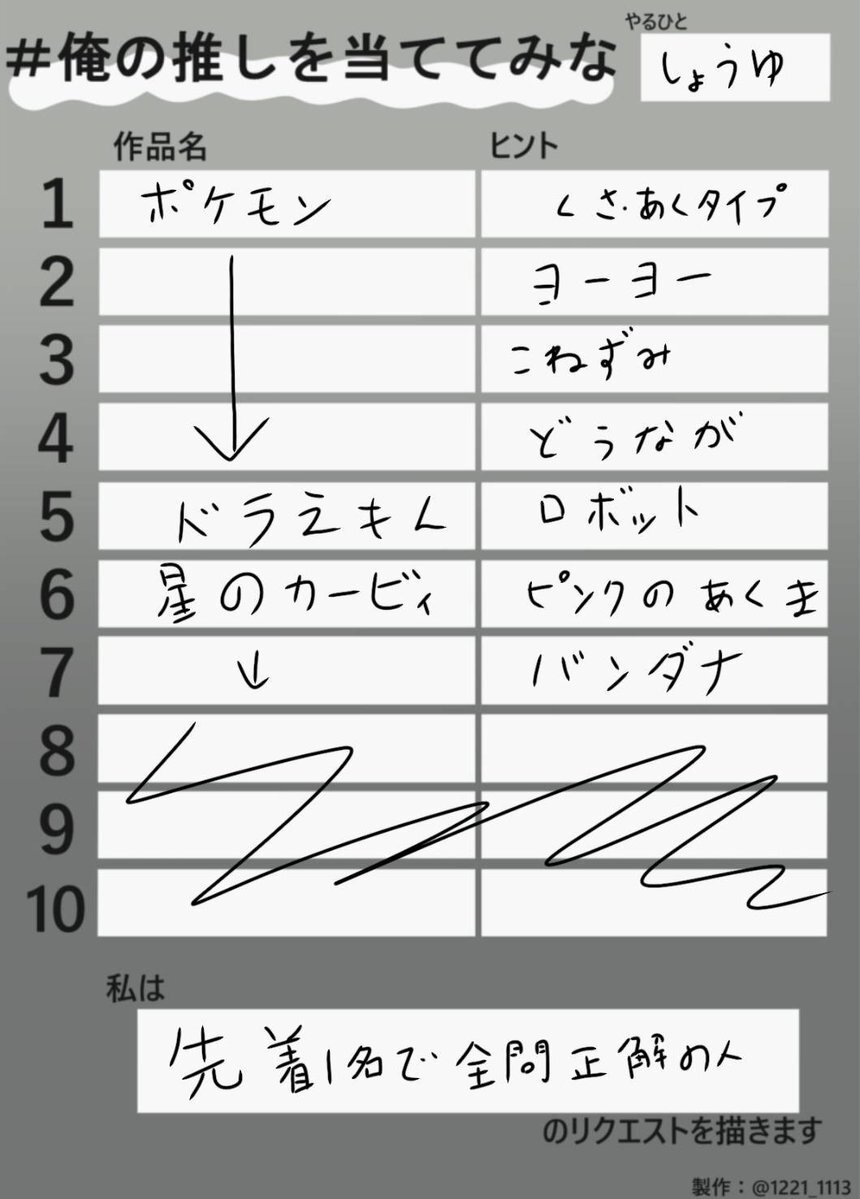 #俺の推しを当ててみな
やるひと
しょうゆ
作品名 ヒント
1 ポケモン くさ・あくタイプ
2 ヨーヨー
3 こねずみ
4 どうなが
5 ドラえもん ロボット
6 星のカービィ ピンクのあくま
7 バンダナ
8
9
10
私は
先着1名で全問正解の人
のリクエストを描きます
製作：@1221_1113